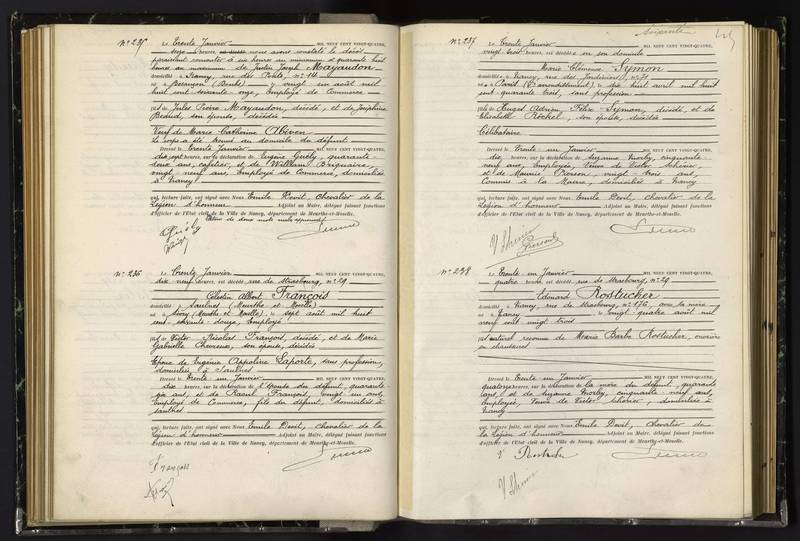 N° 235
Le Trente Janvier MIL NEUF CENT VINGT-QUATRE,
seize heures, nous avons constaté le décès
paraissant remonter à six heures au minimum et quarante huit
heures au maximum de Justin Joseph Mayaudon
domicilié à Nancy, rue des Ponts, n° 14
né à Besançon (Doubs) vingt un août mil
huit cent soixante onze, Employé de Commerce
fils de Jules Pierre Mayaudon, décédé, et de Joséphine
Beaud, son épouse, décédée
Veuf de Marie Catherine Abiven
Le corps a été trouvé au domicile du défunt
Dressé le Trente Janvier MIL NEUF CENT VINGT-QUATRE,
dix sept heures, sur la déclaration de Eugène Guély, quarante
ans, cafetier, et de William Brignaire,
vingt neuf ans, Employé de Commerce, domiciliés
à Nancy
qui, lecture faite, ont signé avec Nous Emile Devit, Chevalier de la
Légion d'honneur Adjoint au Maire, délégué faisant fonctions
d'officier de l'Etat civil de la Ville de Nancy, département de Meurthe-et-Moselle.
N° 236
Le Trente Janvier MIL NEUF CENT VINGT-QUATRE,
dix neuf heures, est décédé rue de Strasbourg, n° 29
Célestin Albert François
domicilié à Saulnes (Meurthe et Moselle)
né à (Meurthe et Moselle) le sept août mil huit
cent soixante douze, Employé
fils de Victor Nicolas François, décédé, et de Marie
Gabrielle son épouse, décédée
Epoux de Eugénie Appoline Laporte, sans profession,
domiciliée à Saulnes
Dressé le Trente un Janvier MIL NEUF CENT VINGT-QUATRE,
dix heures, sur la déclaration de l'Epouse du défunt, quarante
six ans, et de Raoul François, vingt un ans,
Employé de Commerce, fils du défunt, domiciliés à
Saulnes
qui, lecture faite, ont signé avec Nous Emile Devit, Chevalier de la
Légion d'honneur Adjoint au Maire, délégué faisant fonctions
d'officier de l'Etat civil de la Ville de Nancy, département de Meurthe-et-Moselle.
François
Soixante
N° 237
Le Trente Janvier MIL NEUF CENT VINGT-QUATRE,
vingt trois heures, est décédée en son domicile
Marie Clémence Symon
domiciliée à Nancy, rue des Jardiniers, n° 71
née à Paris le dix huit avril mil huit
cent quarante trois, sans profession
fille de Auguste Adrien Félix Symon, décédé, et de
Elisabeth Röckel, son épouse, décédée
Célibataire
Dressé le Trente un Janvier MIL NEUF CENT VINGT-QUATRE,
dix heures, sur la déclaration de Suzanne Morley, cinquante
neuf ans, Employée, Veuve de Victor
et de Maurice Pierson, vingt trois ans,
Commis à la Mairie, domiciliés à Nancy
qui, lecture faite, ont signé avec Nous Emile Devit, Chevalier de la
Légion d'honneur Adjoint au Maire, délégué faisant fonctions
d'officier de l'Etat civil de la Ville de Nancy, département de Meurthe-et-Moselle.
N° 238
Le Trente un Janvier MIL NEUF CENT VINGT-QUATRE,
quatre heures, est décédé rue de Strasbourg, n° 29
Edouard Rostucher
domicilié à Nancy, rue de Strasbourg n° 176, avec sa mère
né à Nancy le vingt quatre août mil
neuf cent vingt trois
fils naturel reconnu de Marie Barbe Rostucher, ouvrière
en chaussures
Dressé le Trente un Janvier MIL NEUF CENT VINGT-QUATRE,
quatorze heures, sur la déclaration de la mère du défunt, quarante
ans, et de Suzanne Morley, cinquante neuf ans,
Employée, Veuve de Victor domiciliées à
Nancy
qui, lecture faite, ont signé avec Nous Emile Devit, Chevalier de
la Légion d'honneur Adjoint au Maire, délégué faisant fonctions
d'officier de l'Etat civil de la Ville de Nancy, département de Meurthe-et-Moselle.
Rostucher